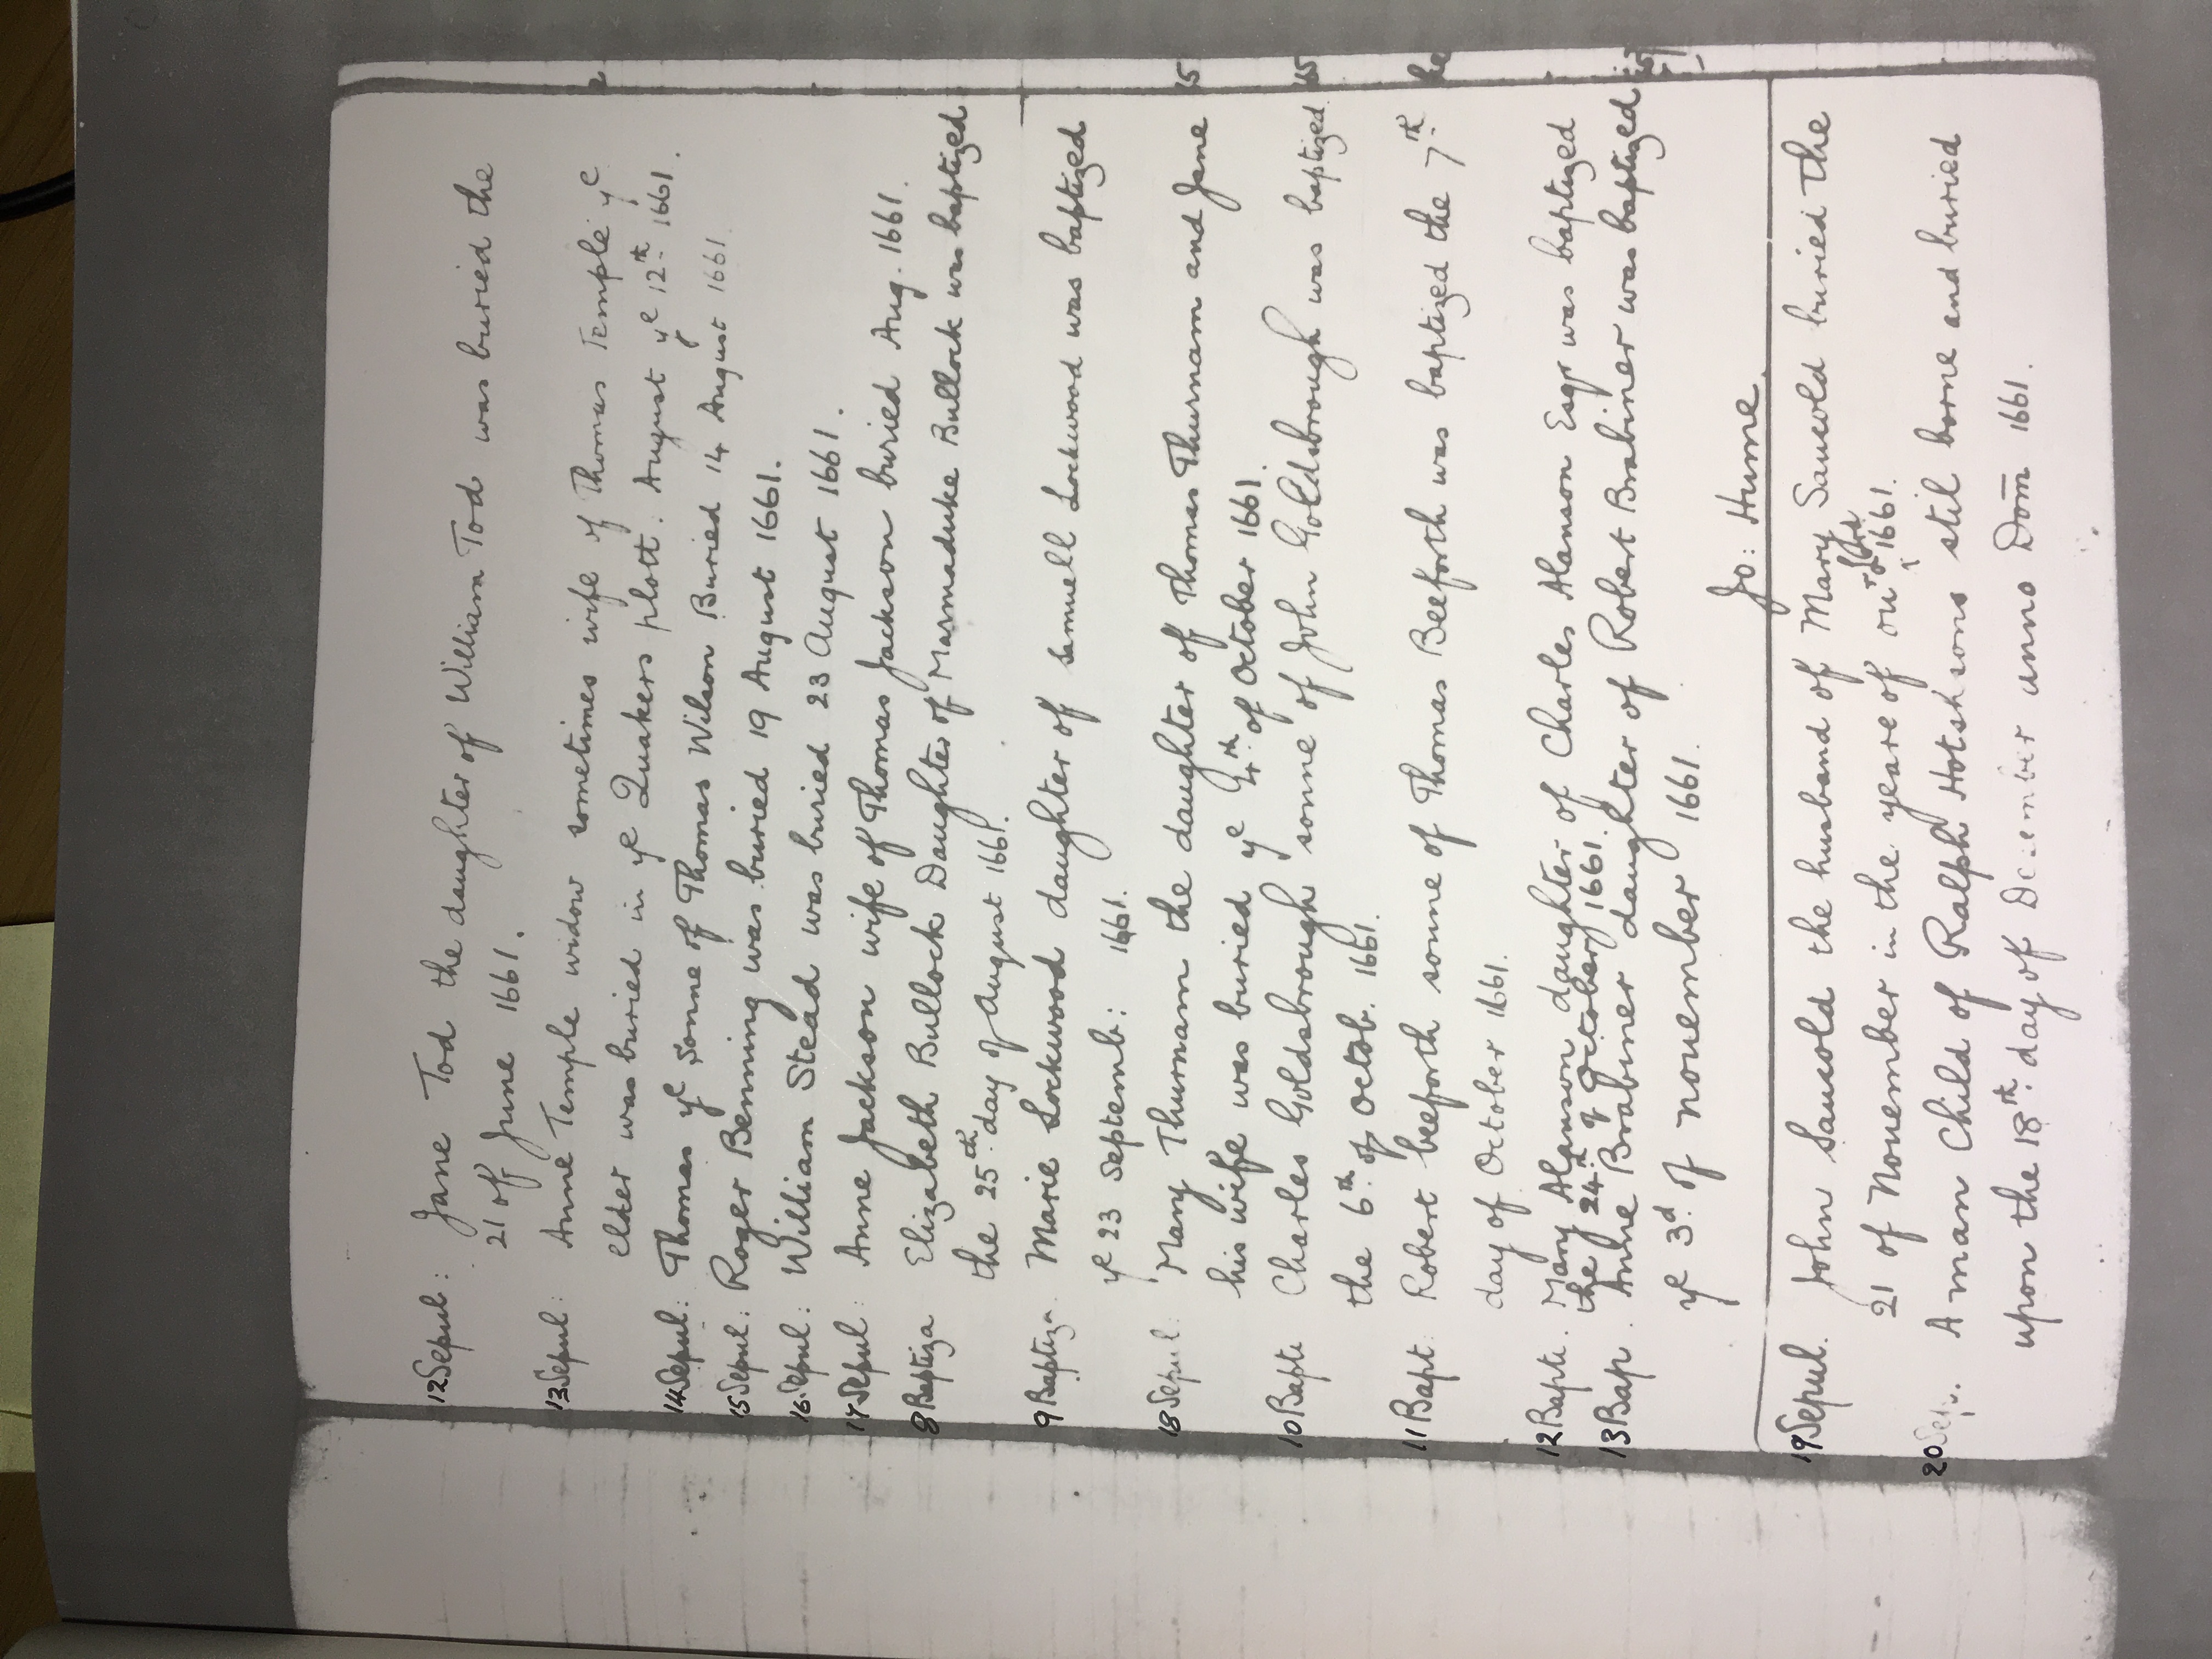 12 Sepul: Jane Tod the daughter of William Tod was buried the
21 off June 1661.
13 Sepul: Anne Temple widow sometimes wife of Thomas Temple ye
elder was buried in ye Quakers plott. August ye 12th 1661.
14 Sepul: Thomas ye Sonne of Thomas Wilson Buried 14 August 1661
15 Sepul: Roger Benning was buried 19 August 1661.
16 Sepul: William Stead was buried 23 August 1661.
17 Sepul: Anne Jackson wife of Thomas Jackson buried Aug. 1661.
8 Baptiza Elizabeth Bullock Daughter of Marmaduke Bullock was baptized
the 25th day of August 1661.
9 Baptiza. Marie Lockwood daughter of Samuell Lockwood was baptized
ye 23 Septemb: 1661.
18 Sepul: Mary Thurnam the daughter of Thomas Thurnam and Jane
his wife was buried ye 4th of October 1661.
10 Bapti Charles Goldsbrough sonne of John Goldsbrough was baptized
the 6th of Octob. 1661.
11 Bapt: Robert beeforth sonne of Thomas Beeforth was baptized the 7th
day of October 1661.
12 Bapt. Mary Alanson daughter of Charles Alanson Esqr was baptized
the 24th of October 1661.
13 Bap. Anne Brabiner daughter of Robert Brabiner was baptized
ye 3d of nouember 1661.
Jo: Hume.
19 Sepul. John Sauold the husband of Mary Sauold buried the
21 of Nouember in the yeare of our Lord 1661.
20 Sep. A man Child of Ralph Hotshsons stil borne and buried
upon the 18th day of December anno Dom 1661.